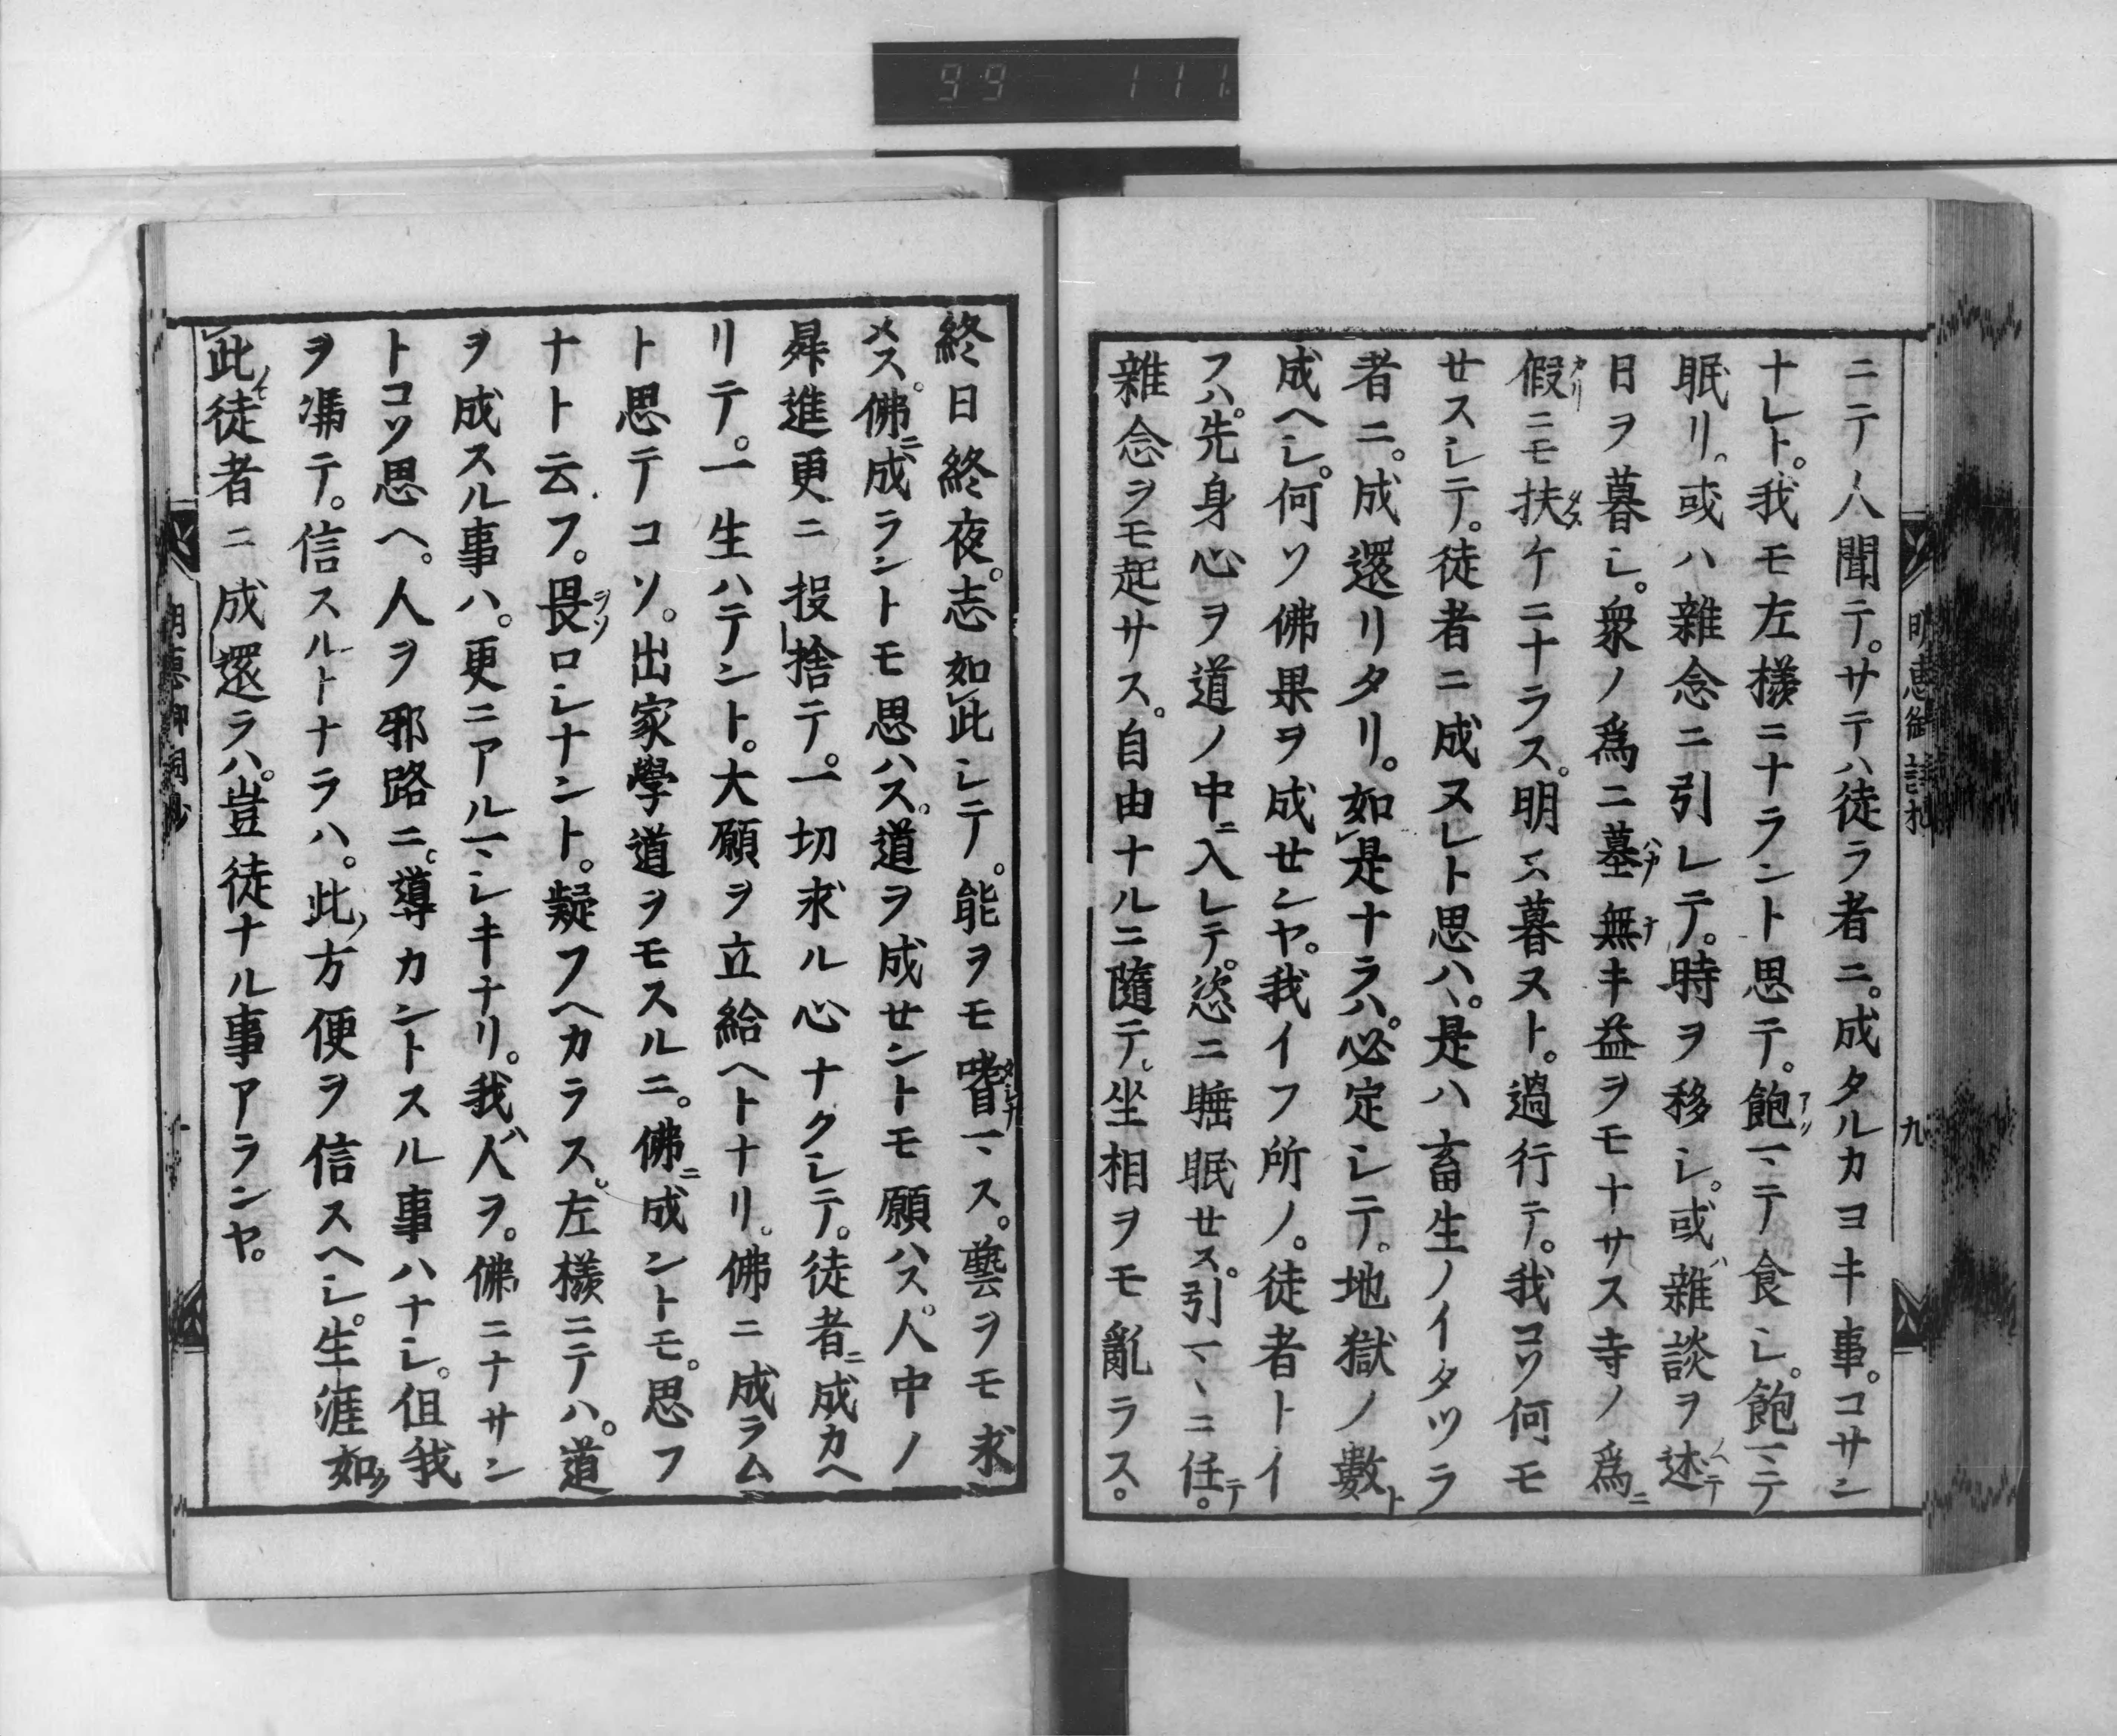 99 111
明恵御詞抄 九
ニテ人聞テ。サテハ徒ラ者ニ。成タルカヨキ事。コサン
ナレト。我モ左様ニナラント思テ。飽マテ食シ。飽マテ
眠リ。或ハ雑念ニ引レテ。時ヲ移シ。或ハ雑談ヲ述テ
日ヲ暮シ。衆ノ為ニ墓無キ益ヲモナサス寺ノ為ニ
假ニモ扶ケニナラス。明ㇱ暮ヌト。過行テ。我コソ何モ
せスレテ。徒者ニ成ヌレト思ハヽ。是ハ畜生ノイタツラ
者ニ。成還リタリ。如是ナラハ。必定シテ。地獄ノ數ト
成ヘシ。何ソ佛果ヲ成せンヤ。我イフ所ノ。徒者トイ
フハ。先身心ヲ道ノ中ニ入レテ。恣ニ睡眠せス。引マヽニ任テ。
雑念ヲモ起サス。自由ナルニ隨テ。坐相ヲモ亂ラス。
終日終夜。志如此シテ。能ヲモ嗜マス。藝ヲモ求
メス。佛ニ成ラントモ思ハス。道ヲ成せントモ願ハス。人中ノ
昇進更ニ投捨テ。一切求ル心ナクシテ。徒者ニ成カヘ
リテ。一生ハテント。大願ヲ立給ヘトナリ。佛ニ成ラム
ト思テコソ。出家學道ヲモスルニ。佛ニ成ントモ。思フ
ナト云フ。畏ロシナント。疑フヘカラス。左様ニテハ。道
ヲ成スル事ハ。更ニアルマシキナリ。我ハ人ヲ。佛ニナサン
トコソ思ヘ。人ヲ邪路ニ。導カントスル事ハナシ。但我
ヲ馮テ。信スルトナラハ。此ノ方便ヲ信スヘシ。生涯如
此徒者ニ成還ラハ。豈徒ナル事アランヤ。